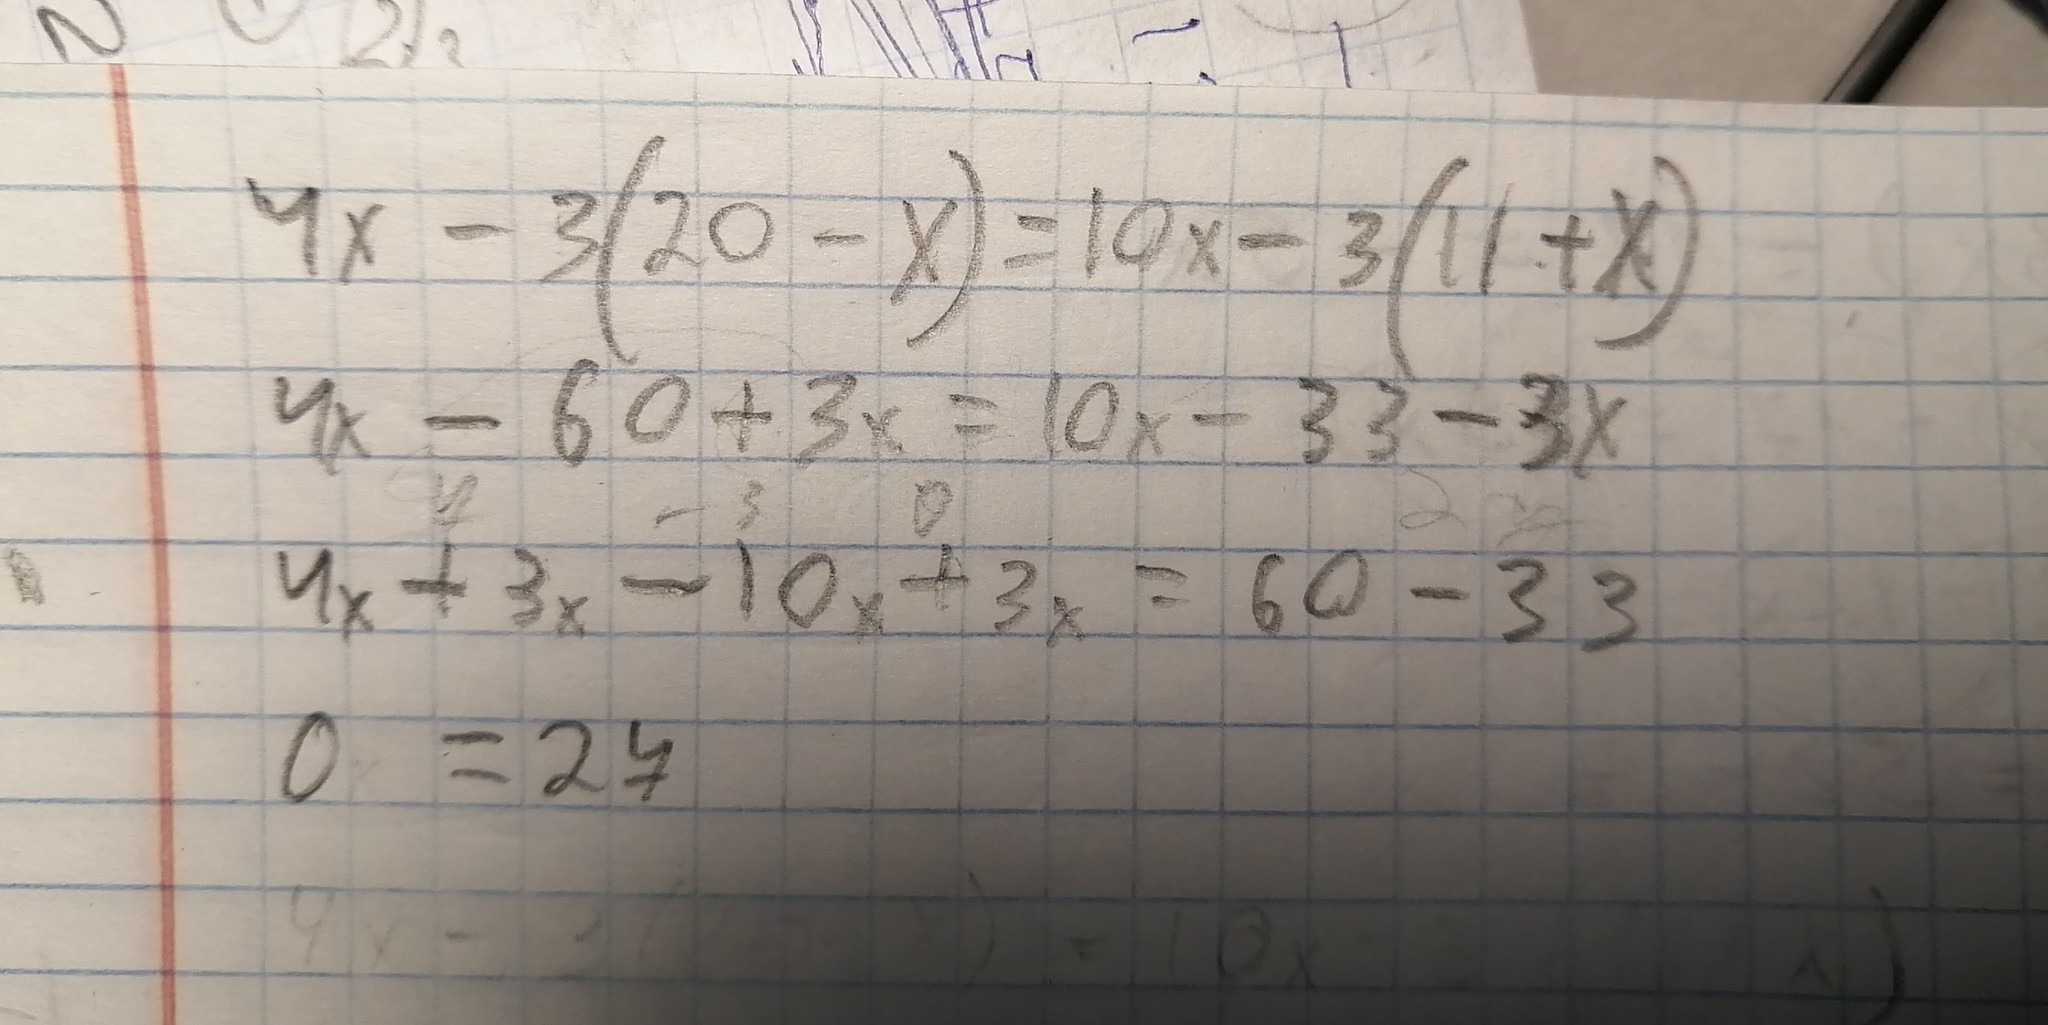 4x - 3(20 - x) = 10x - 3(11 + x)
4x - 60 + 3x = 10x - 33 - 3x
4x + 3x - 10x + 3x = 60 - 33
0 = 27